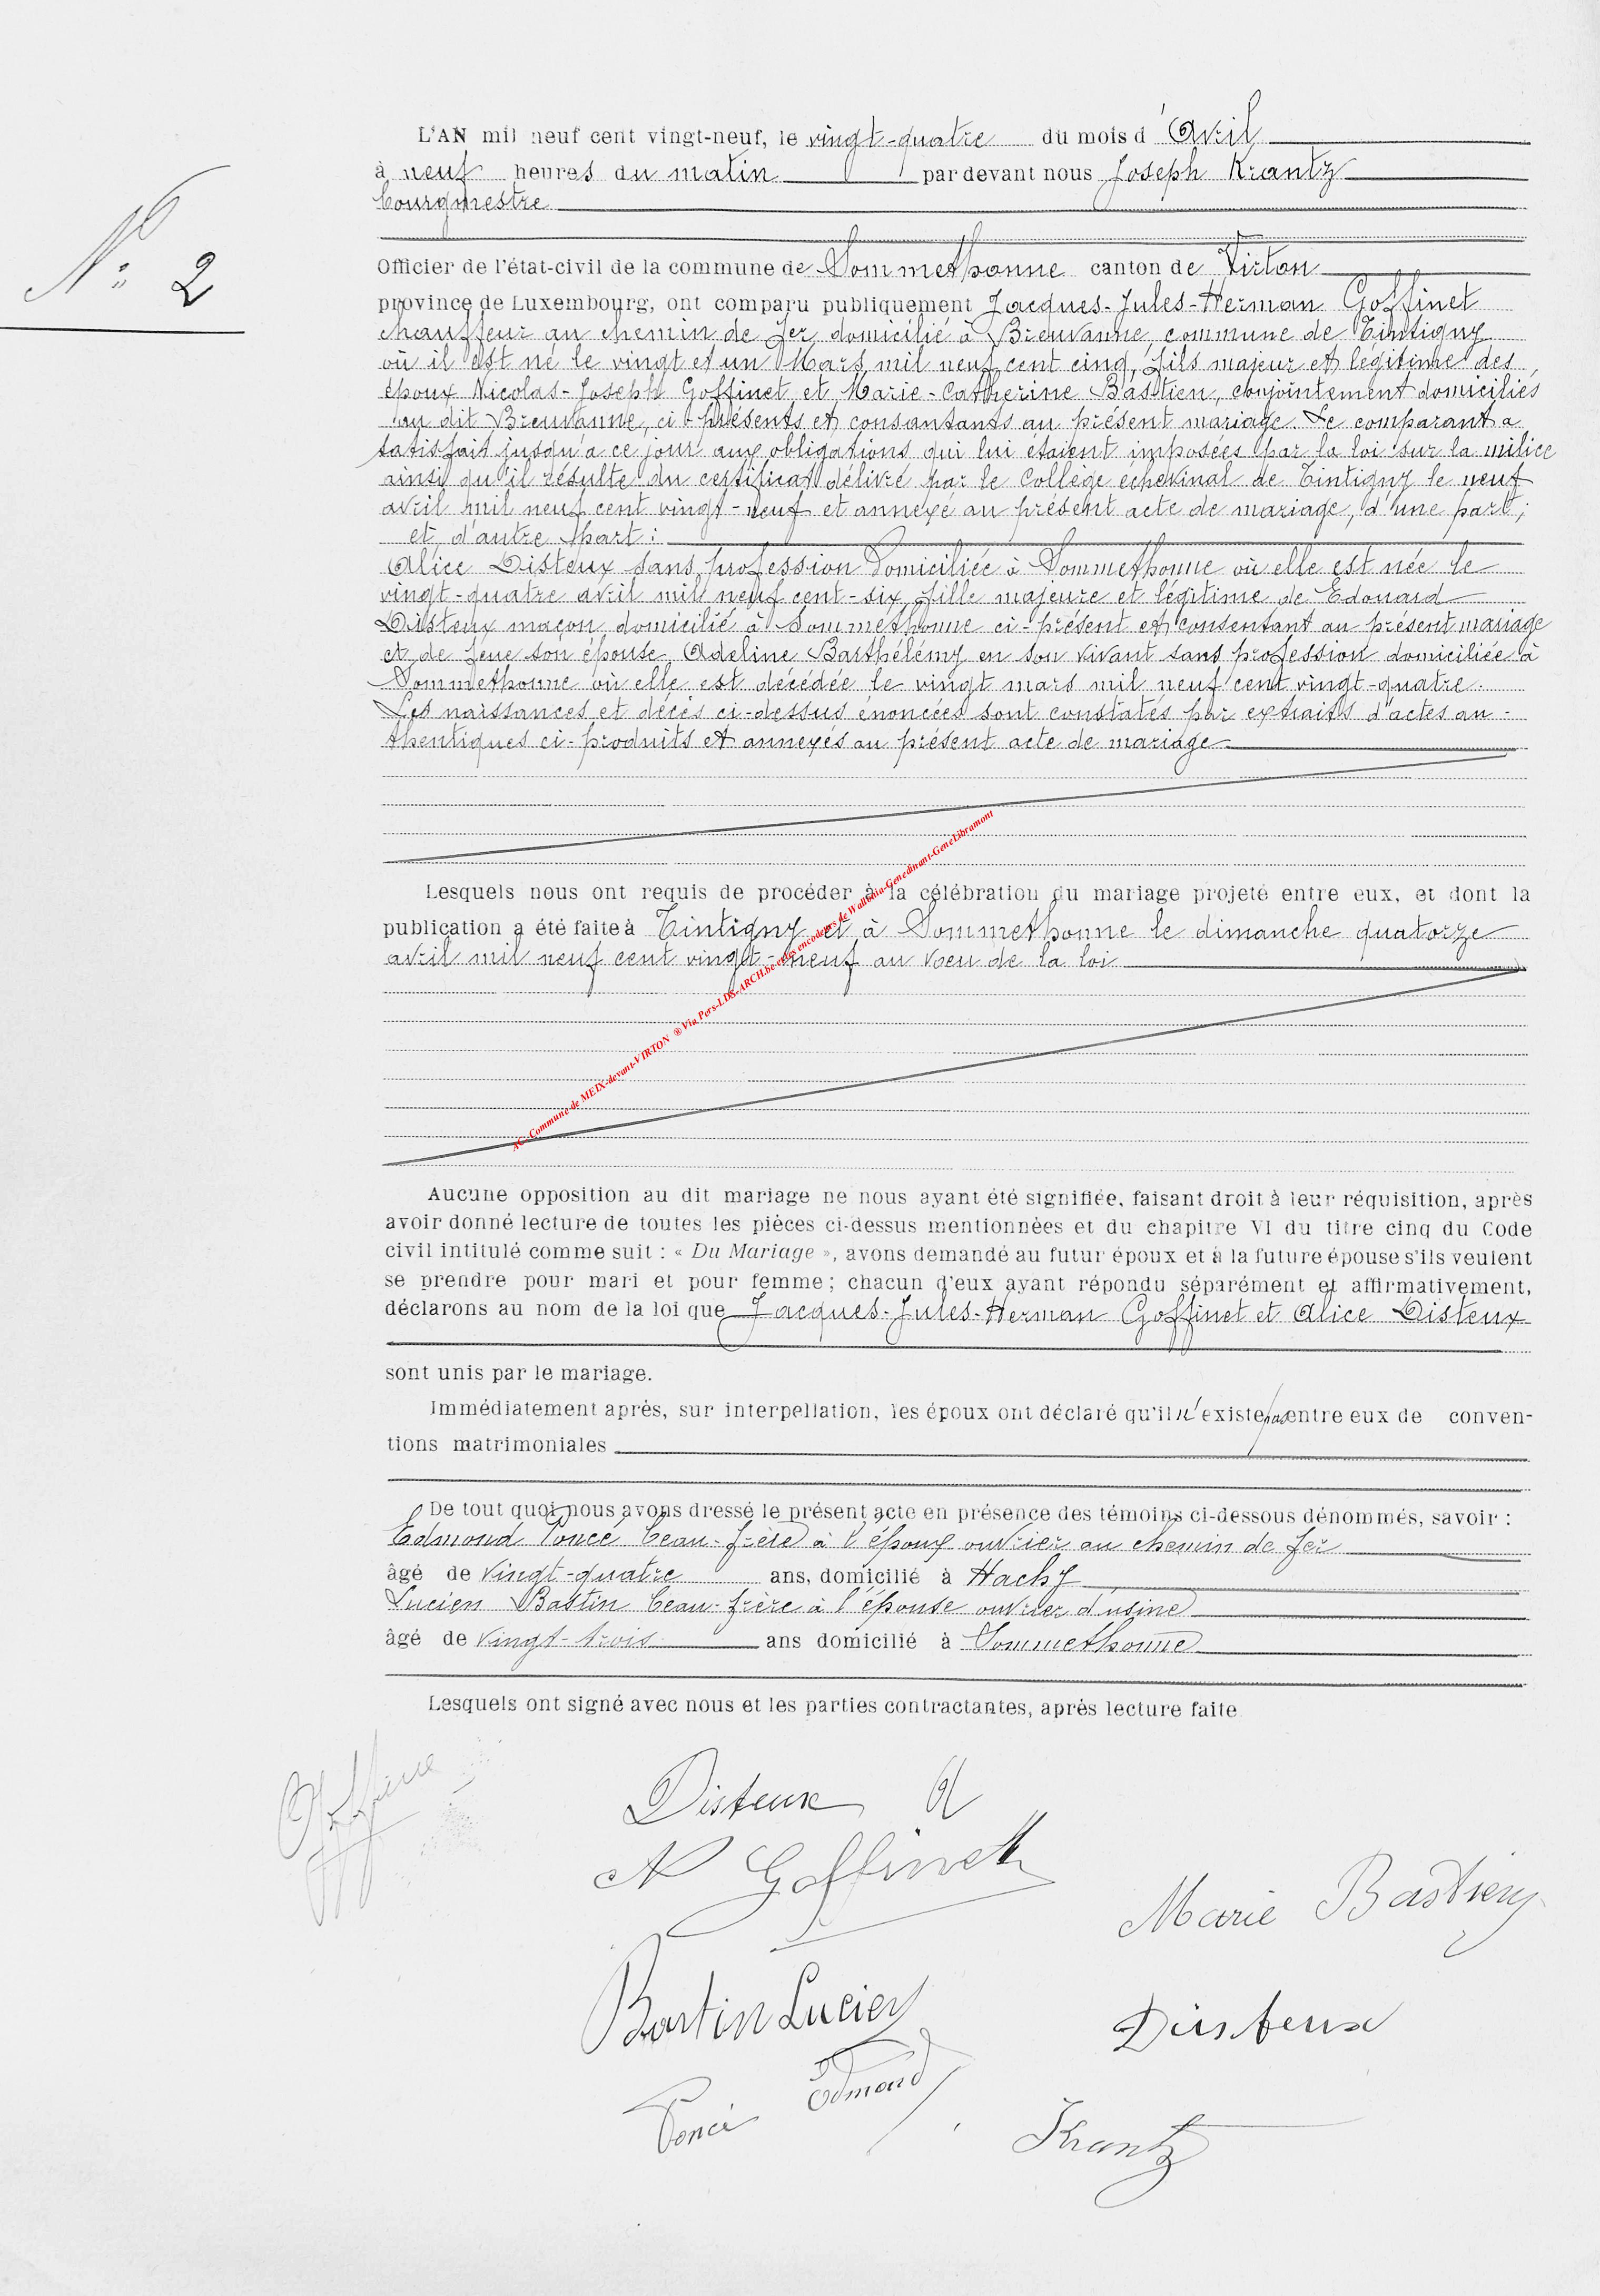 L'AN mil neuf cent vingt-neuf, le vingt-quatre du mois d'Avril
à neuf heures du matin par devant nous Joseph Krantz
bourgmestre
N° 2
Officier de l'état-civil de la commune de Sommethonne canton de Virton
province de Luxembourg, ont comparu publiquement Jacques-Jules-Herman Goffinet
chauffeur au chemin de fer domicilié à Breuvanne, commune de Tintigny
où il est né le vingt et un Mars mil neuf cent cinq, fils majeur et légitime des
époux Nicolas-Joseph Goffinet et Marie-Catherine Bastien, conjointement domiciliés
au dit Breuvanne, ci-présents et consantants au présent mariage. Le comparant a
satisfait jusqu'à ce jour aux obligations qui lui étaient imposées par la loi sur la milice
ainsi qu'il résulte du certificat délivré par le Collège échevinal de Tintigny le neuf
avril mil neuf cent vingt-neuf et annexé au présent acte de mariage, d'une part;
et d'autre part:
Alice Disteux sans profession Domiciliée à Sommethonne où elle est née le
vingt-quatre avril mil neuf cent-six, fille majeure et légitime de Edouard
Disteux maçon, domicilié à Sommethonne ci-présent et consentant au présent mariage
et de feue son épouse Adeline Barthélémy en son vivant sans profession domiciliée à
Sommethonne où elle est décédée le vingt mars mil neuf cent vingt-quatre.
Les naissances et décès ci-dessus énoncées sont constatés par extraits d'actes au-
thentiques ci-produits et annexés au présent acte de mariage
Lesquels nous ont requis de procéder à la célébration du mariage projeté entre eux, et dont la
publication a été faite à Tintigny et à Sommethonne le dimanche quatorze
avril mil neuf cent vingt-neuf au voeu de la loi
AC-Commune de MEIX-devant-VIRTON ® Via Pers-LDS-ARCH.be et les encodeurs de Wallonia-Genedinant-GeneLibramont
Aucune opposition au dit mariage ne nous ayant été signifiée, faisant droit à leur réquisition, après
avoir donné lecture de toutes les pièces ci-dessus mentionnées et du chapitre VI du titre cinq du Code
civil intitulé comme suit : « Du Mariage », avons demandé au futur époux et à la future épouse s'ils veulent
se prendre pour mari et pour femme; chacun d'eux ayant répondu séparément et affirmativement,
déclarons au nom de la loi que Jacques-Jules-Herman Goffinet et Alice Disteux
sont unis par le mariage.
Immédiatement après, sur interpellation, les époux ont déclaré qu'il n'existe pas entre eux de conven-
tions matrimoniales
De tout quoi nous avons dressé le présent acte en présence des témoins ci-dessous dénommés, savoir :
Edmond Poncé beau-frère à l'époux ouvrier au chemin de fer
âgé de vingt-quatre ans, domicilié à Hachy
Lucien Bastin beau-frère à l'épouse ouvrier d'usine
âgé de vingt-trois ans domicilié à Sommethonne
Lesquels ont signé avec nous et les parties contractantes, après lecture faite
Disteux A
N Goffinet
Marie Bastien
Bastin Lucien
Disteux
Poncé Edmond
Krantz